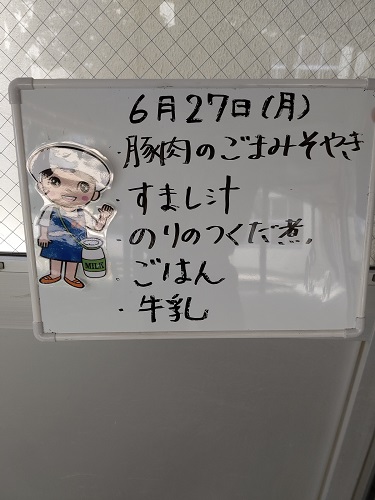 6月27日(月)
・豚肉のごまみそやき
・すまし汁
・のりのつくだ煮
・ごはん
・牛乳
MILK